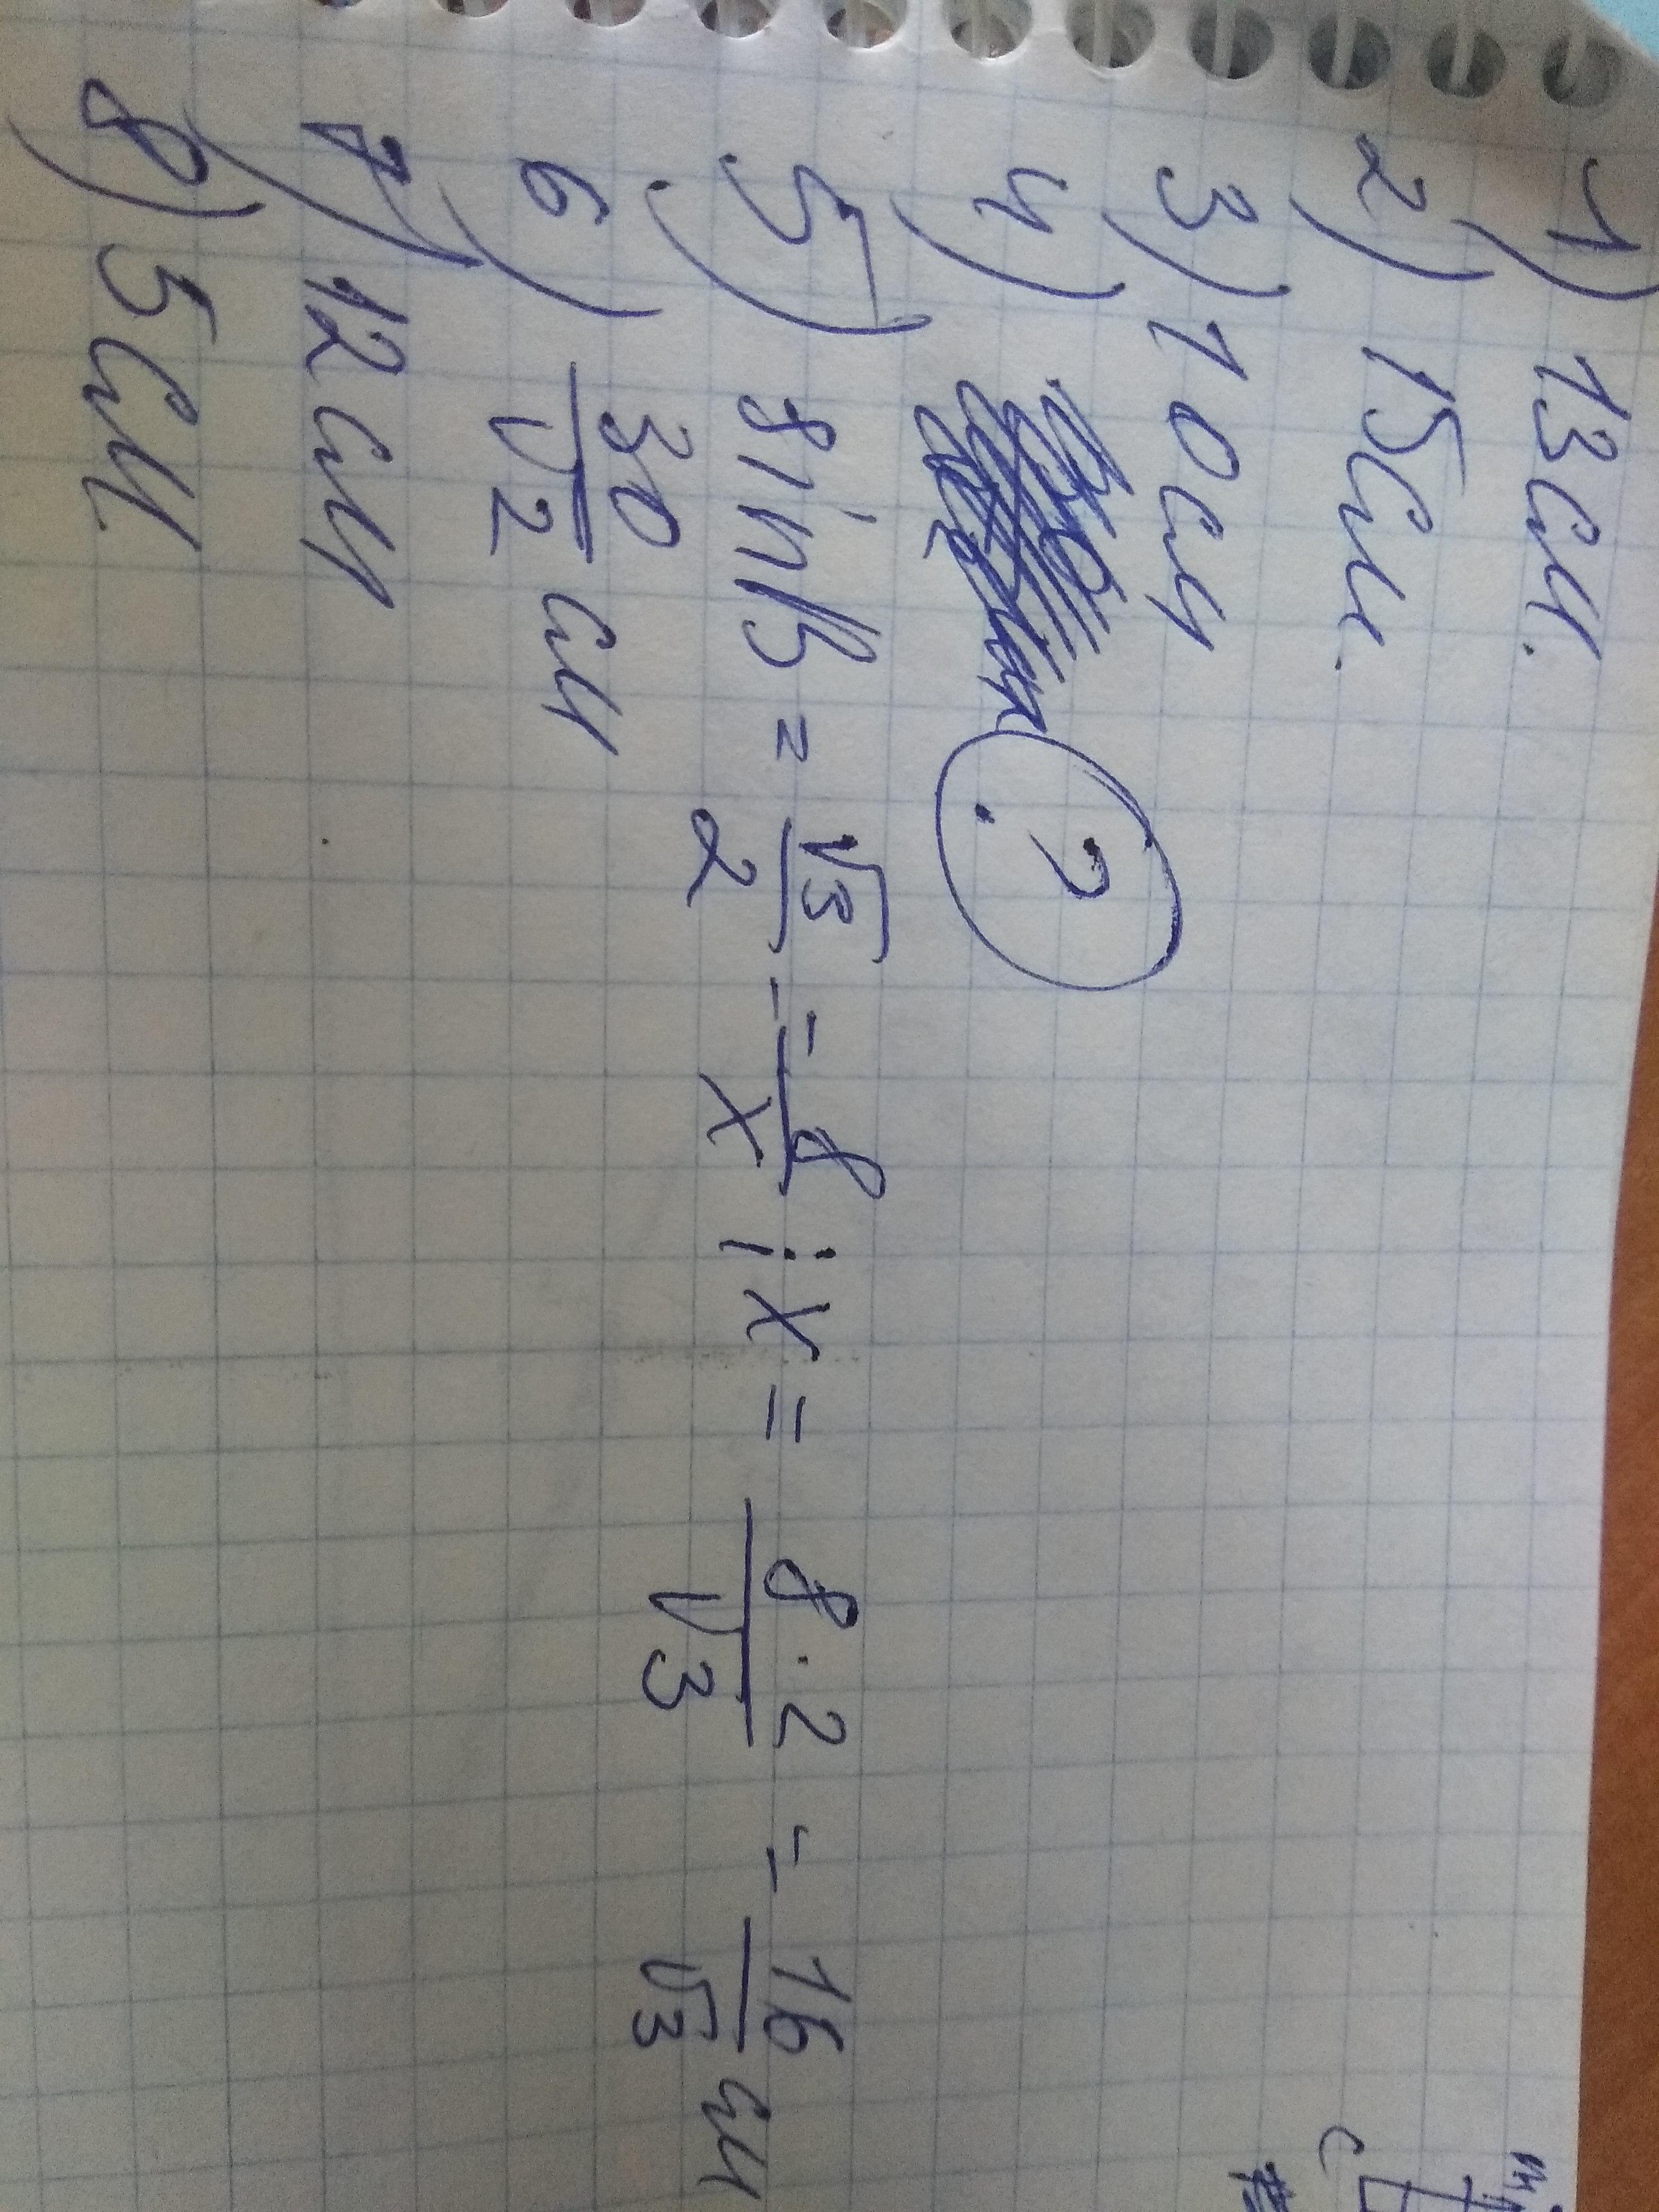 1) 13 см.
2) 15 см.
3) 10 см
4) ?
5) sin B = √3/2 = 8/x ; x = 8·2/√3 = 16/√3 см
6) 30/√2 см
7) 12 см
8) 5 см
C